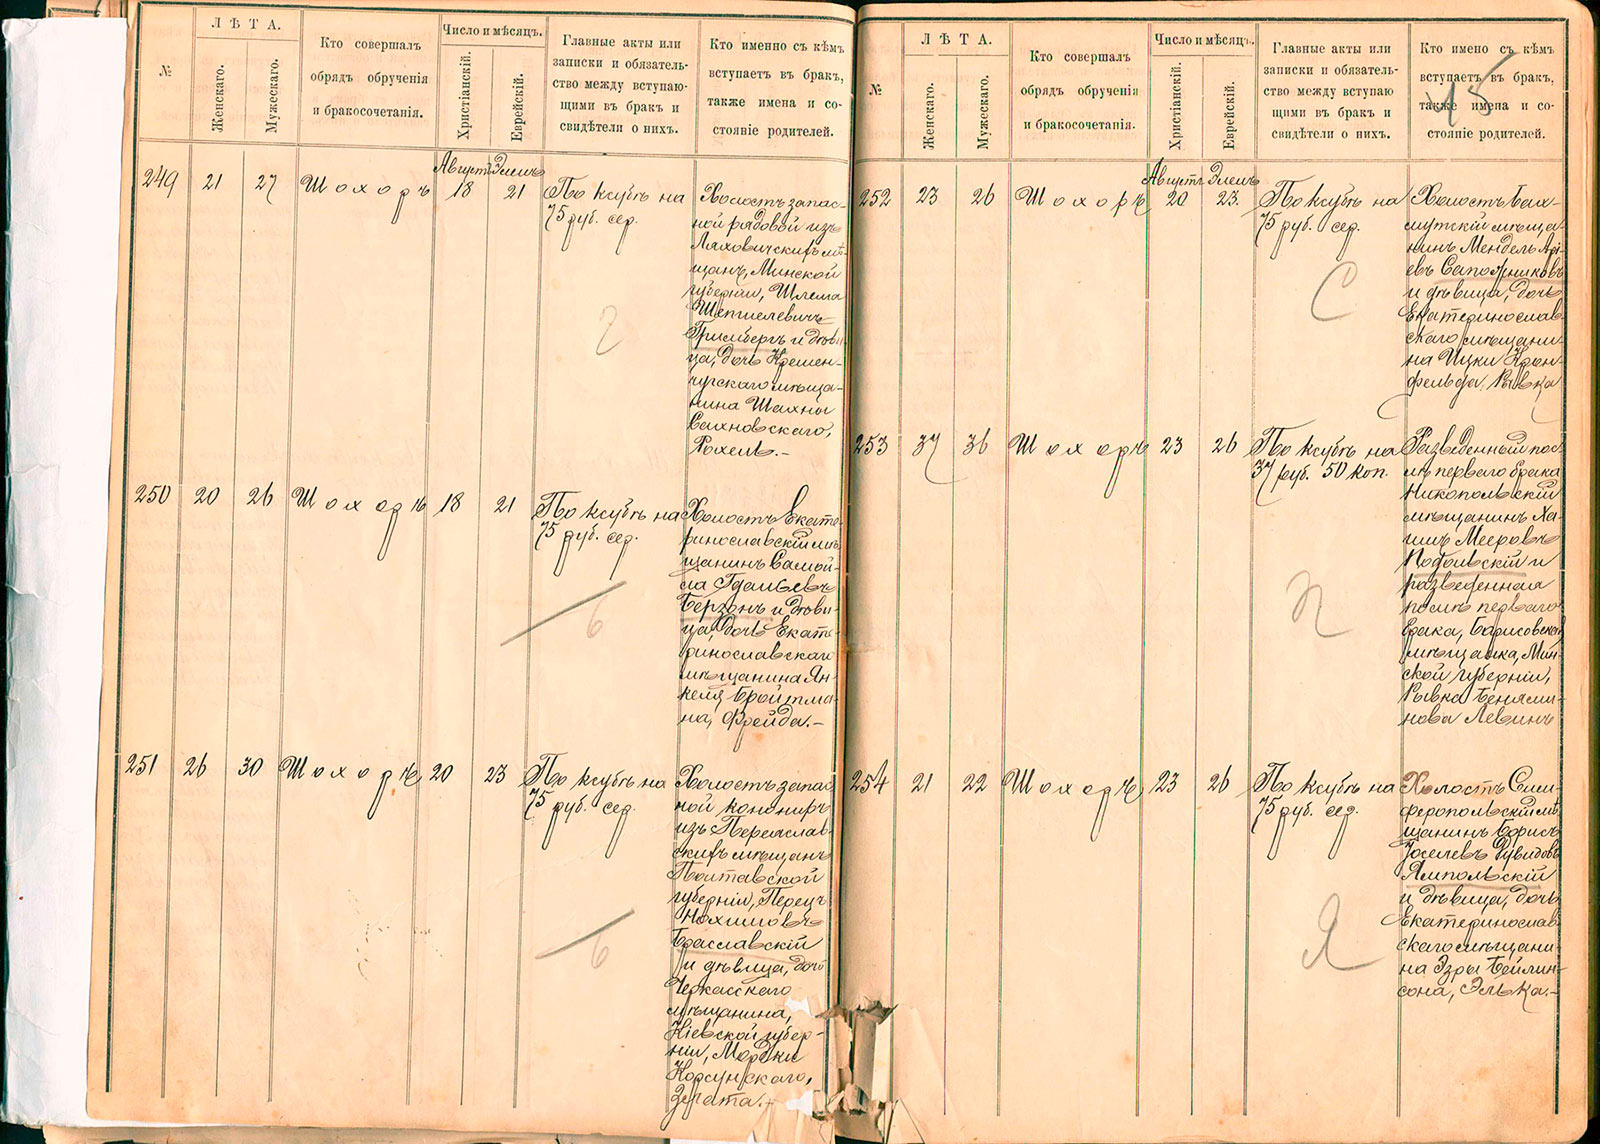 №
ЛѢТА.
Женскаго.
Мужескаго.
Кто совершалъ
обрядъ обрученія
и бракосочетанія.
Число и мѣсяцъ.
Христіанскій.
Еврейскій.
Главные акты или
записки и обязатель-
ство между вступаю-
щими въ бракъ и
свидѣтели о нихъ.
Кто именно съ кѣмъ
вступаетъ въ бракъ,
также имена и со-
стояніе родителей.
249 21 27 Шохоръ
Августъ Элелъ
18 21
По ксубѣ на
75 руб. сер.
Холостъ запас-
ной рядовой изъ
Ляховичскихъ мѣ-
щанъ, Минской
губерніи, Шлема
Гринбергъ и дѣви-
ца, дочь Кремен-
чугскаго мѣща-
нина Шахны
Сахновскаго,
Рохель.-
Г
250 20 26 Шохоръ 18 21
По ксубѣ на
75 руб. сер.
Холостъ Екате-
ринославскій мѣ-
щанинъ Самой-
ла Гдальевъ
Берзонъ и дѣви-
ца, дочь Екате-
ринославскаго
мѣщанина Ян-
келя Бройтма-
на, Фрейда.-
Б
251 26 30 Шохоръ 20 23
По ксубѣ на
75 руб. сер.
Холостъ запас-
ной канониръ
изъ Переяслав-
скихъ мѣщанъ
Полтавской
губерніи, Перецъ
Нахимовъ
Браславскій
и дѣвица, дочь
Черкасскаго
мѣщанина,
Кіевской губер-
ніи, Мордки
Корсунскаго,
Злата.-
Б
№
ЛѢТА.
Женскаго.
Мужескаго.
Кто совершалъ
обрядъ обрученія
и бракосочетанія.
Число и мѣсяцъ.
Христіанскій.
Еврейскій.
Главные акты или
записки и обязатель-
ство между вступаю
щими въ бракъ и
свидѣтели о нихъ.
Кто имено съ кѣмъ
вступаетъ въ бракъ,
также имена и со-
стояніе родителей.
45
252 23 26 Шохоръ
Августъ Элелъ
20 23.
По ксубѣ на
75 руб. сер.
Холостъ Бах-
мутскій мѣща-
нинъ Мендель Арі-
евъ Сапожниковъ
и дѣвица, дочь
Екатеринослав-
скаго мѣщани-
на Ицки Крон-
фельда, Рывка
С
253 37 36 Шохоръ 23 26
По ксубѣ на
37 руб. 50 коп.
Разведенный пос-
лѣ перваго брака
Никопольскій
мѣщанинъ Ха-
имъ Мееровъ
Подольскій и
разведенная
послѣ перваго
брака, Борисовская
мѣщанка, Мин-
ской губерніи,
Рывка Беньями-
нова Левинъ
П
254 21 22 Шохоръ 23 26
По ксубѣ на
75 руб. сер.
Холостъ Сим-
феропольскій мѣ-
щанинъ Борисъ
Іоселевъ Рувидовъ
Ямпольскій
и дѣвица, дочь
Екатеринослав-
скаго мѣщани-
на Эзры Бейлин-
сона, Элька.-
Я